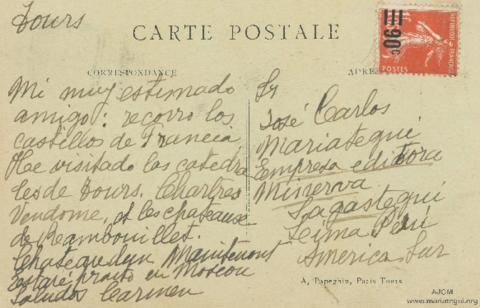 Tours
CARTE POSTALE
CORRESPONDANCE
ADRE
90c
POSTES
Mi muy estimado
amigo: recorro los
castillos de Francia
He visitado las catedra
les de Tours. Chartres
Vendome, et les chateause
de Rambouillet.
Chateaudun Maintenont
estaré pronto en Moscou
Saludos Carmen
Sr
José Carlos
Mariategui
Empresa editora
Minerva
Sagastegui
Lima Perú
America Sur
A. Papeghin, Paris Tours
AJCM
www.mariategui.org